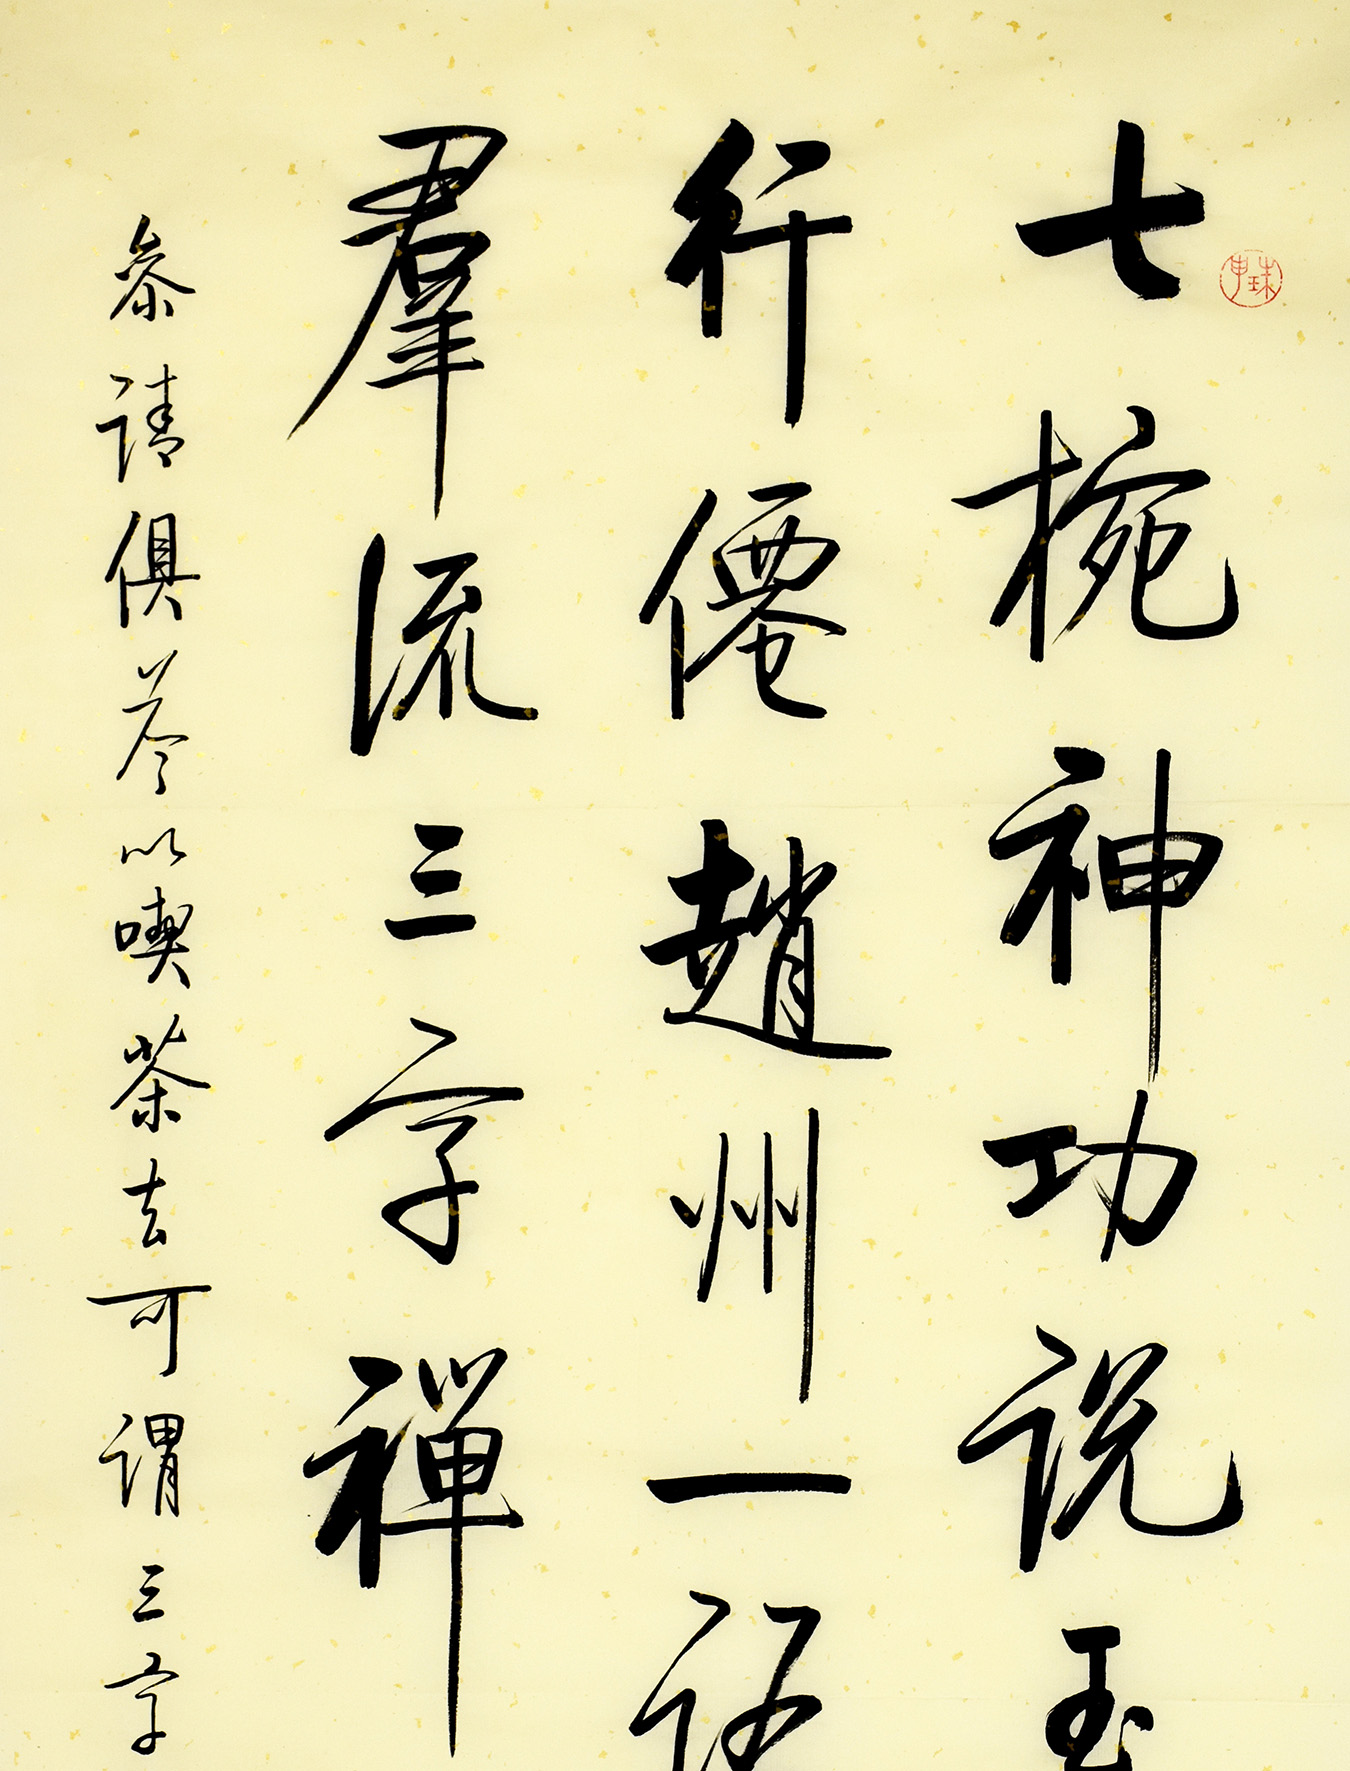 七椀神功説玉
行僊趙州一
羣流三字禪
參請俱答以喫茶去可謂三字